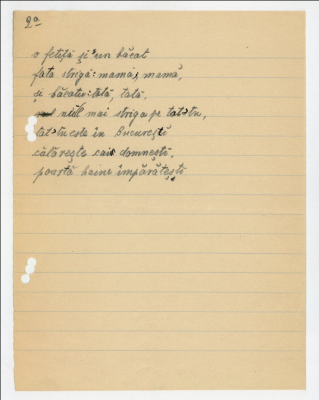 2a
o fetiță și un băcat
fata strigă: mamă, mamă,
și băcatu: tată, tată.
mai striga pe tat-tu,
tat-tu este în București
călărește cai domnești,
poartă haine împărătești